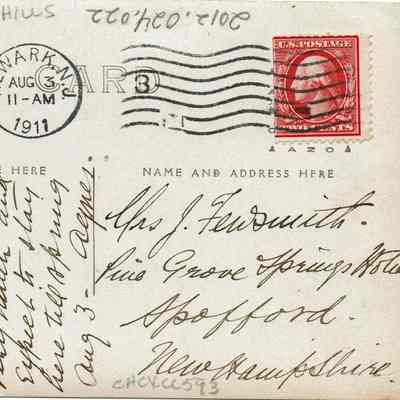 HILLS
2012.024.022
NEWARK, N.J.
AUG 3
11-AM
1911
CARD
3
U.S. POSTAGE
TWO CENTS
AZO
E HERE
NAME AND ADDRESS HERE
Mrs J. Fewsmith.
Pine Grove Springs Hotel
Spofford.
New Hampshire.
very much and
expect to stay
here till spring
Aug 3- Agnes
CHCXCC593